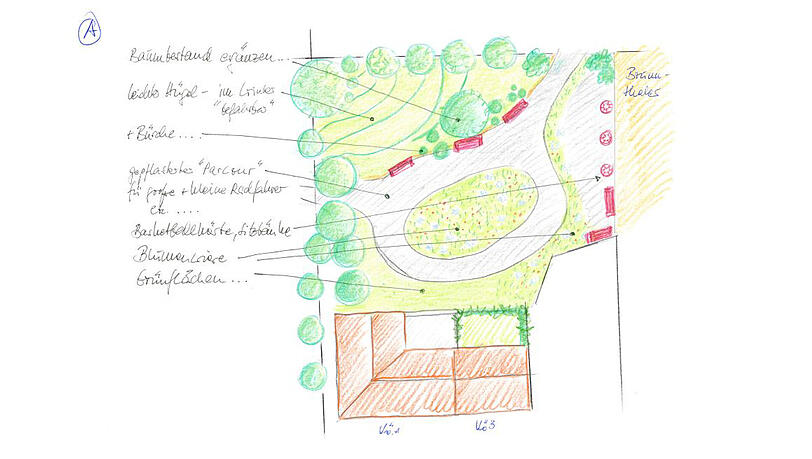 A
Baumbestand ergänzen...
leichte Hügel – im Winter
"befahrbar"
+ Büsche....
gepflastertes "Parcour"
für große + kleine Radfahrer
etc.....
Basketballkörbe, Sitzbänke
Blumenwiese
Grünflächen...
Brunn-
thaler
Kö.1
Kö3